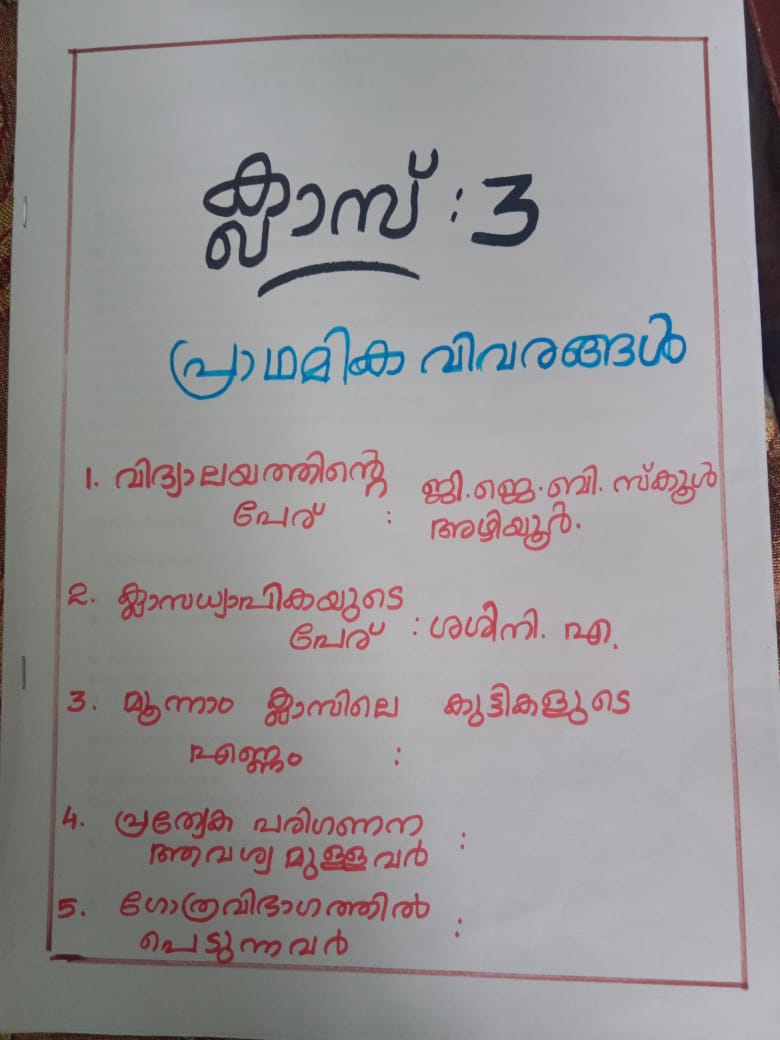 ക്ലാസ് : 3
പ്രാഥമിക വിവരങ്ങൾ
1. വിദ്യാലയത്തിന്റെ ജി.ജെ.ബി. സ്കൂൾ
പേര് : അഴിയൂർ.
2. ക്ലാസധ്യാപികയുടെ
പേര് : ശശീനി. എ.
3. മൂന്നാം ക്ലാസിലെ കുട്ടികളുടെ
എണ്ണം :
4. പ്രത്യേക പരിഗണന :
ആവശ്യമുള്ളവർ
5. ഗോത്രവിഭാഗത്തിൽ :
പെടുന്നവർ